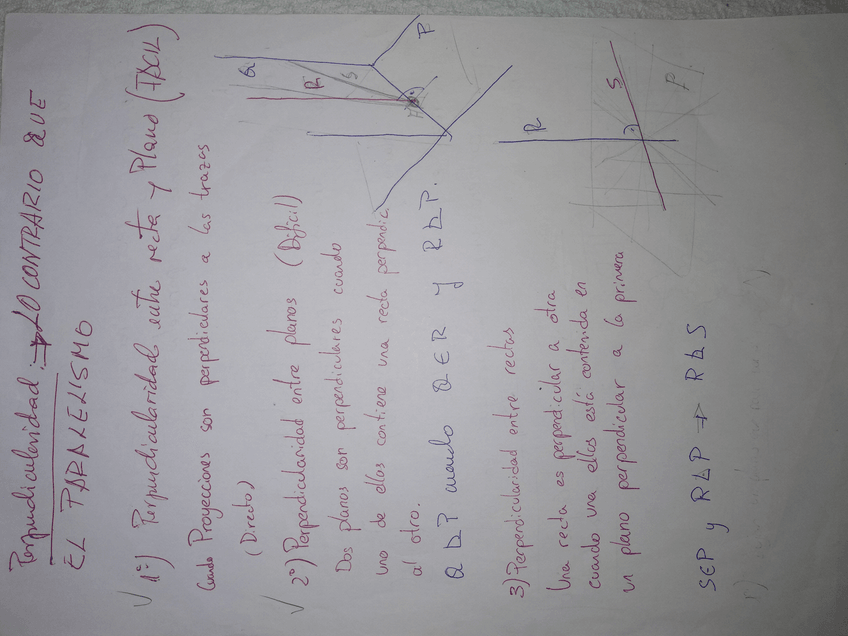 Perpendicularidad: → LO CONTRARIO QUE
EL PARALELISMO
✓ 1º) Perpendicularidad entre recta y Plano (FÁCIL)
Cuando Proyecciones son perpendiculares a las trazas
(Directo)
✓ 2º) Perpendicularidad entre planos (Difícil)
Dos planos son perpendiculares cuando
uno de ellos contiene una recta perpendic.
al otro.
Q ⊥ P cuando Q ∈ R y R ⊥ P.
Q
R
S
P
3) Perpendicularidad entre rectas
Una recta es perpendicular a otra
cuando una ellas está contenida en
un plano perpendicular a la primera
S∈P y R⊥P → R⊥S
R
S
P